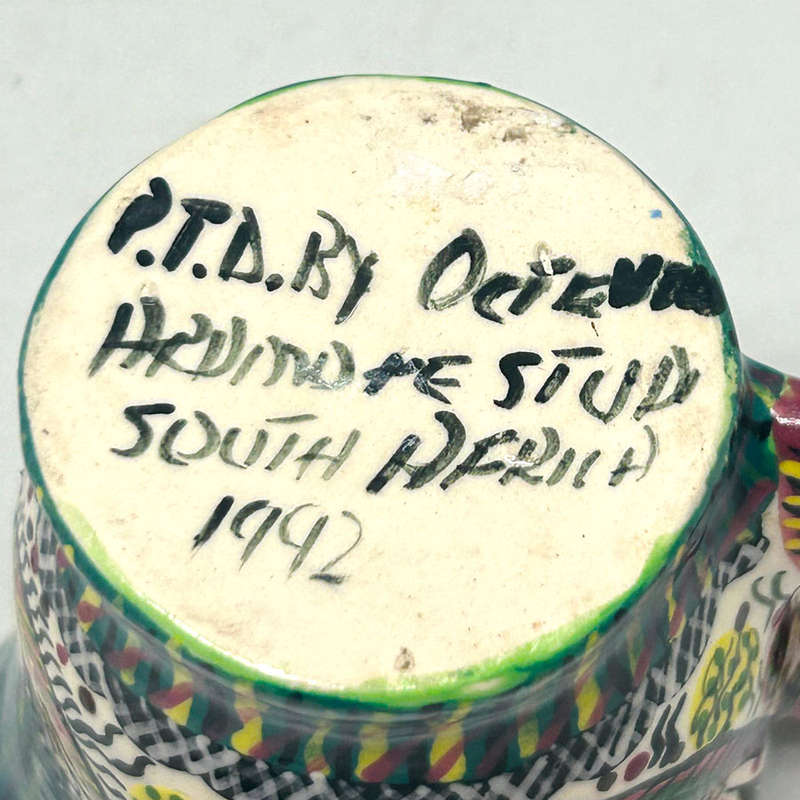 P.T.D. BY OCTEVIA
ARDMORE STUD
SOUTH AFRICA
1992